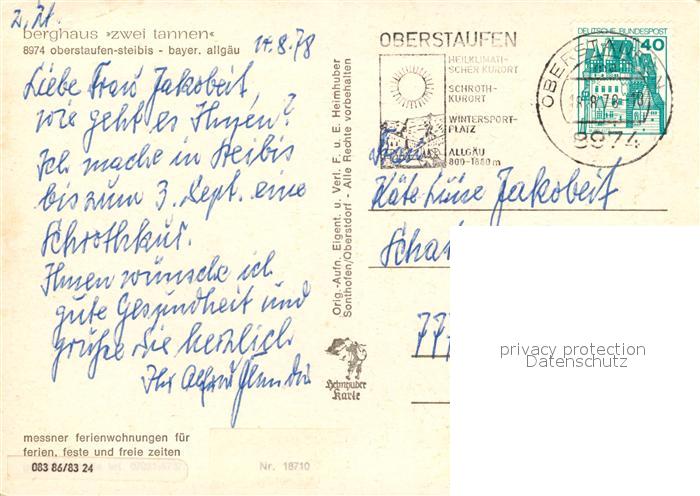 z. Zt.
berghaus »zwei tannen«
8974 oberstaufen-steibis - bayer. allgäu
14.8.78
Liebe Frau Jakobeit,
wie geht es Ihnen?
Ich mache in Steibis
bis zum 3. Sept. eine
Schrothkur.
Ihnen wünsche ich
gute Gesundheit und
grüße Sie herzlich
Ihr Alfred
messner ferienwohnungen für
ferien, feste und freie zeiten
083 86/83 24
Nr. 18710
Orig.-Aufn. Eigent. u. Verl. F. u. E. Heimhuber
Sonthofen/Oberstdorf - Alle Rechte vorbehalten
Heimhuber
Karte
OBERSTAUFEN
HEILKLIMATI-
SCHER KURORT
SCHROTH-
KURORT
WINTERSPORT-
PLATZ
ALLGÄU
800-1800 m
OBERSTAUFEN
8974
DEUTSCHE BUNDESPOST
40
Frau
Käte-Luise Jakobeit
777
privacy protection
Datenschutz